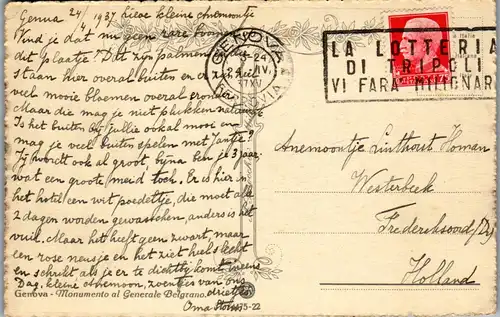 Genua 24/4 1937 Lieve kleine Anemoontje
Vind je dat nu geen rare boomen op
dit plaatje? Dit zijn palmen, die
staan hier overal buiten en er zijn
veel mooie bloemen overal onder.
Maar die mag je niet plukken natuurlijk
Is het buiten bij Jullie ook al mooi en
mag je veel buiten spelen met Jantje?
Jij wordt ook al groot bijna ben je 3 jaar,
wat een groote meid toch. Er is hier in
het hotel een wit poedeltje, die moet alle
2 dagen worden gewasschen, anders is het
vuil. Maar het heeft geen zwart, maar
een rose neusje en het ziet heel slecht
en schrikt als je er dichtbij komt ineens
Dag, kleine Anemoon, zoentjes van ons
drietjes
Oma
Genova - Monumento al Generale Belgrano.
75-22
GENOVA
24
IV
XV
FERROVIA
LA LOTTERIA
DI TRIPOLI
VI FARÀ MILIONARI
Anemoontje Linthorst Homan
Westerbeek
Frederiksoord (Dr.)
Holland